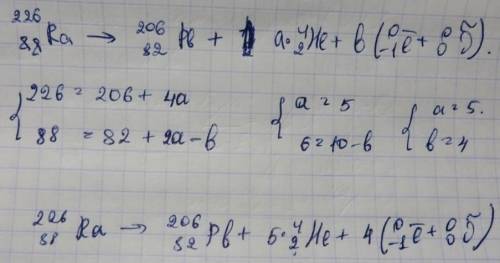 ²²⁶₈₈Ra → ²⁰⁶₈₂Pb + a·⁴₂He + b(⁰₋₁e̅ + ⁰₀ν̅).
{226 = 206 + 4a {a = 5 {a = 5.
88 = 82 + 2a - b 6 = 10 - b b = 4
²²⁶₈₈Ra → ²⁰⁶₈₂Pb + 5·⁴₂He + 4(⁰₋₁e̅ + ⁰₀ν̅)